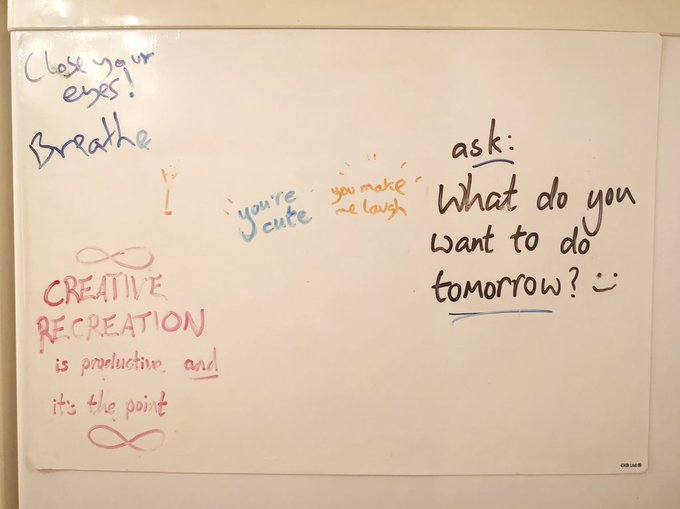 Close your
eyes!
Breathe
you're
cute
you make
me laugh
ask:
What do you
want to do
tomorrow? :)
CREATIVE
RECREATION
is productive and
it's the point
CKB Ltd ®